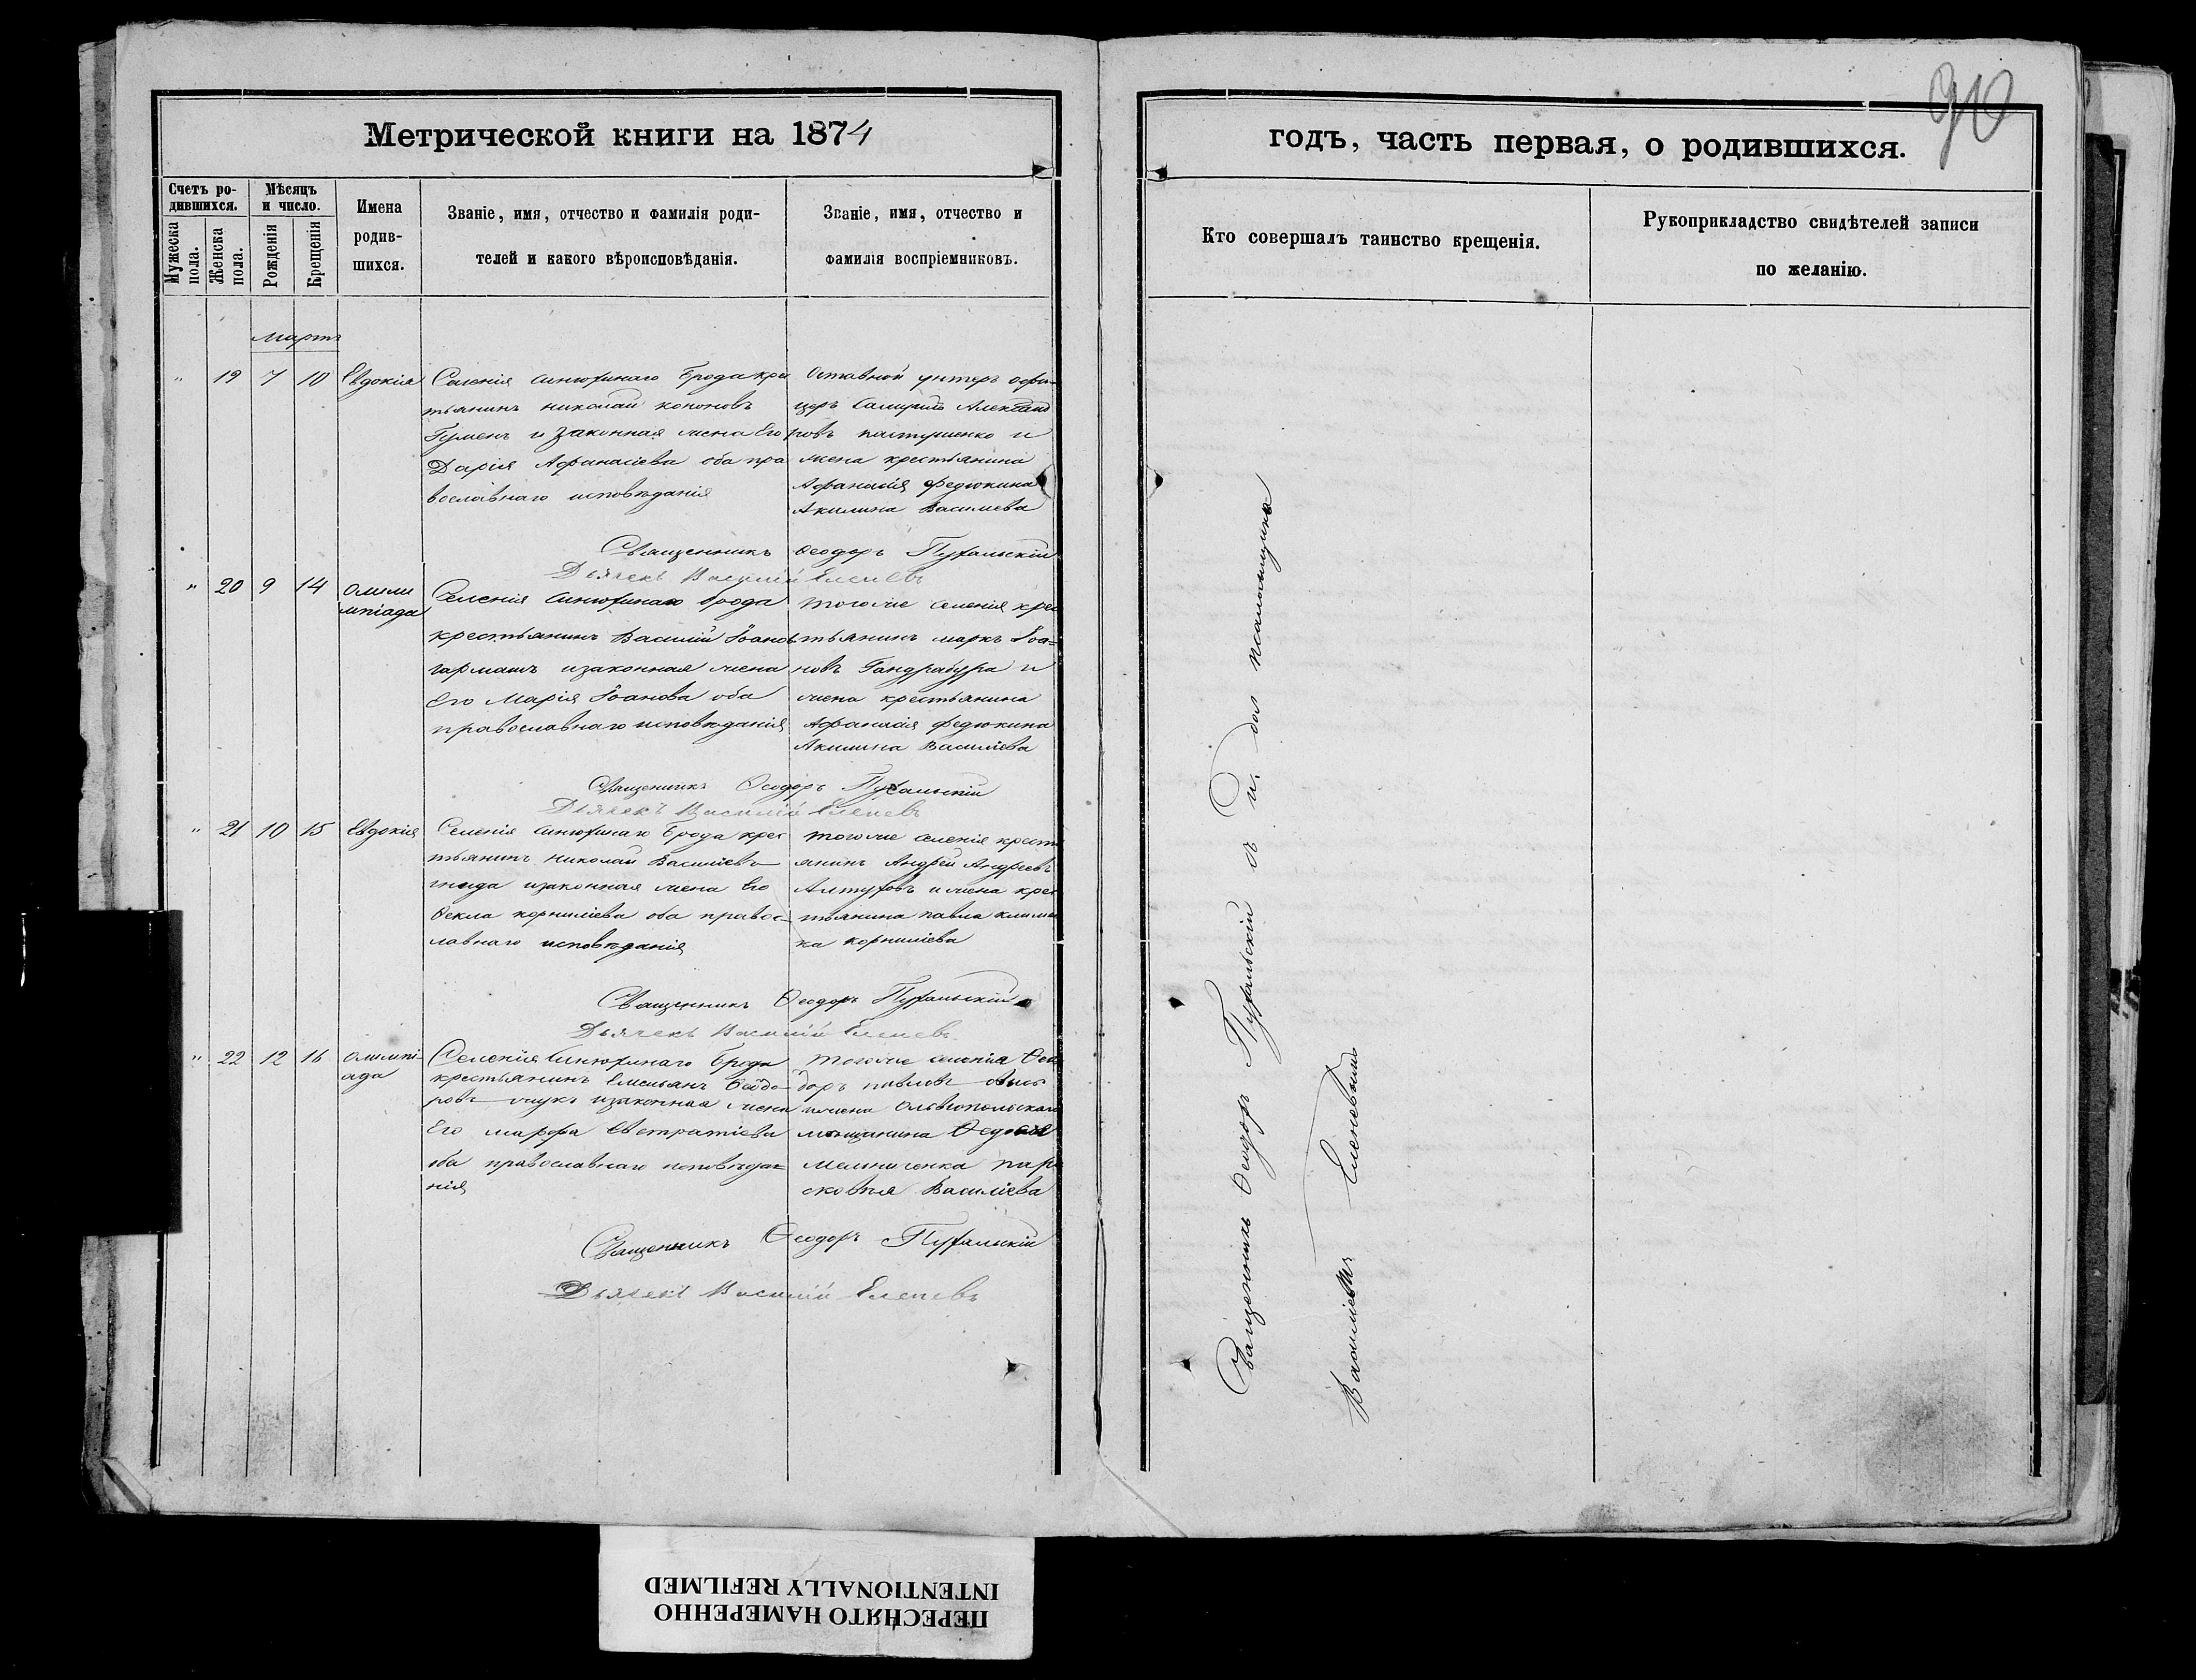 Метрической книги на 1874
годъ, часть первая, о родившихся.
910
Счетъ ро-
дившихся.
Мѣсяцъ
и число.
Мужеска
пола.
Женска
пола.
Рожденія
Крещенія
Имена
родив-
шихся.
Званіе, имя, отчество и фамилія роди-
телей и какого вѣроисповѣданія.
Званіе, имя, отчество и
фамилія воспріемниковъ.
Кто совершалъ таинство крещенія.
Рукоприкладство свидѣтелей записи
по желанію.
Мартъ
" 19 7 10 Евдокія
Селенія Синюхинаго Брода крес
тьянинъ николай кононовъ
Гуменъ и законная жена Его
Дарія Афанасіева оба пра
вославнаго исповѣданія
Отставной унтеръ офи-
церъ Александ
ровъ пастушенко и
жена крестьянина
Афанасія федюкина
Акилина Василиева
Священникъ Ѳеодоръ Пухальскій
Дьячекъ Василій Еленевъ
" 20 9 14 Олим
мпіада
Селенія Синюхинаго брода
крестьянинъ Василій Іоановъ
гармашъ изаконная жена
его Марія Іоанова оба
православнаго исповѣданія
тогоже селенія крес
тьянинъ маркъ Іоа-
новъ Гандрабура и
жена крестьянина
Афанасія федюкина
Акилина Василіева
Священникъ Ѳеодоръ Пухальскій
Дьячекъ Василій Еленевъ
" 21 10 15 Евдокія
Селенія Синюхинаго Брода крес
тьянинъ Николай Василіевъ
гнида изаконная жена Его
Ѳекла корниліева оба правос-
лавнаго исповѣданія
тогоже селенія кресть
янинъ Андрей Андреевъ
Алтуховъ и жена крес
тьянина павла клим
ка корниліева
Священникъ Ѳеодоръ Пухальскій
Дьячекъ Василій Еленевъ
" 22 12 16 Олимпі-
ада
Селенія Синюхинаго Брода
крестьянинъ Емельянъ Ѳеодо-
ровъ изаконная жена
Его марфа Евстратіева
оба православнаго исповѣда-
нія
тогоже селенія Ѳео
доръ павловъ
ижена Ольвіопольскаго
мѣщанина
мельниченка пара
сковия Василіева
Священникъ Ѳеодоръ Пухальскій
Дьячекъ Василій Еленевъ
Священникъ Ѳеодоръ Пухальскій съ И. дол псаломщика
Василіемъ Еленевымъ
ПЕРЕСНЯТО НАМЕРЕННО
INTENTIONALLY REFILMED